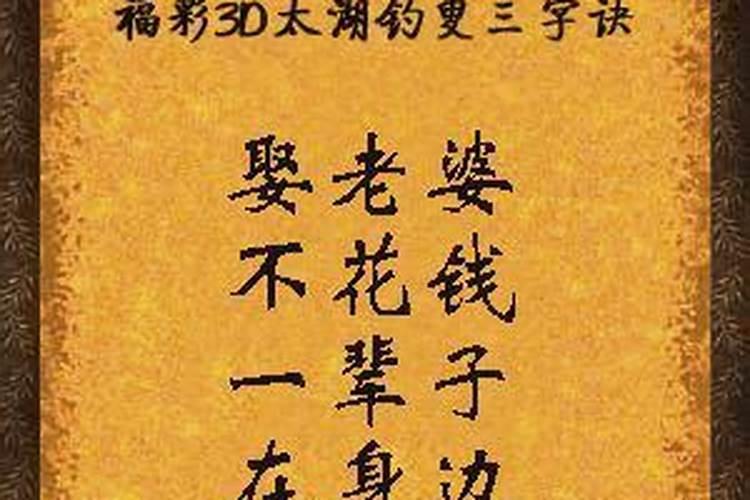 福彩3D太湖钓叟三字诀
娶老婆
不花钱
一辈子
在身边